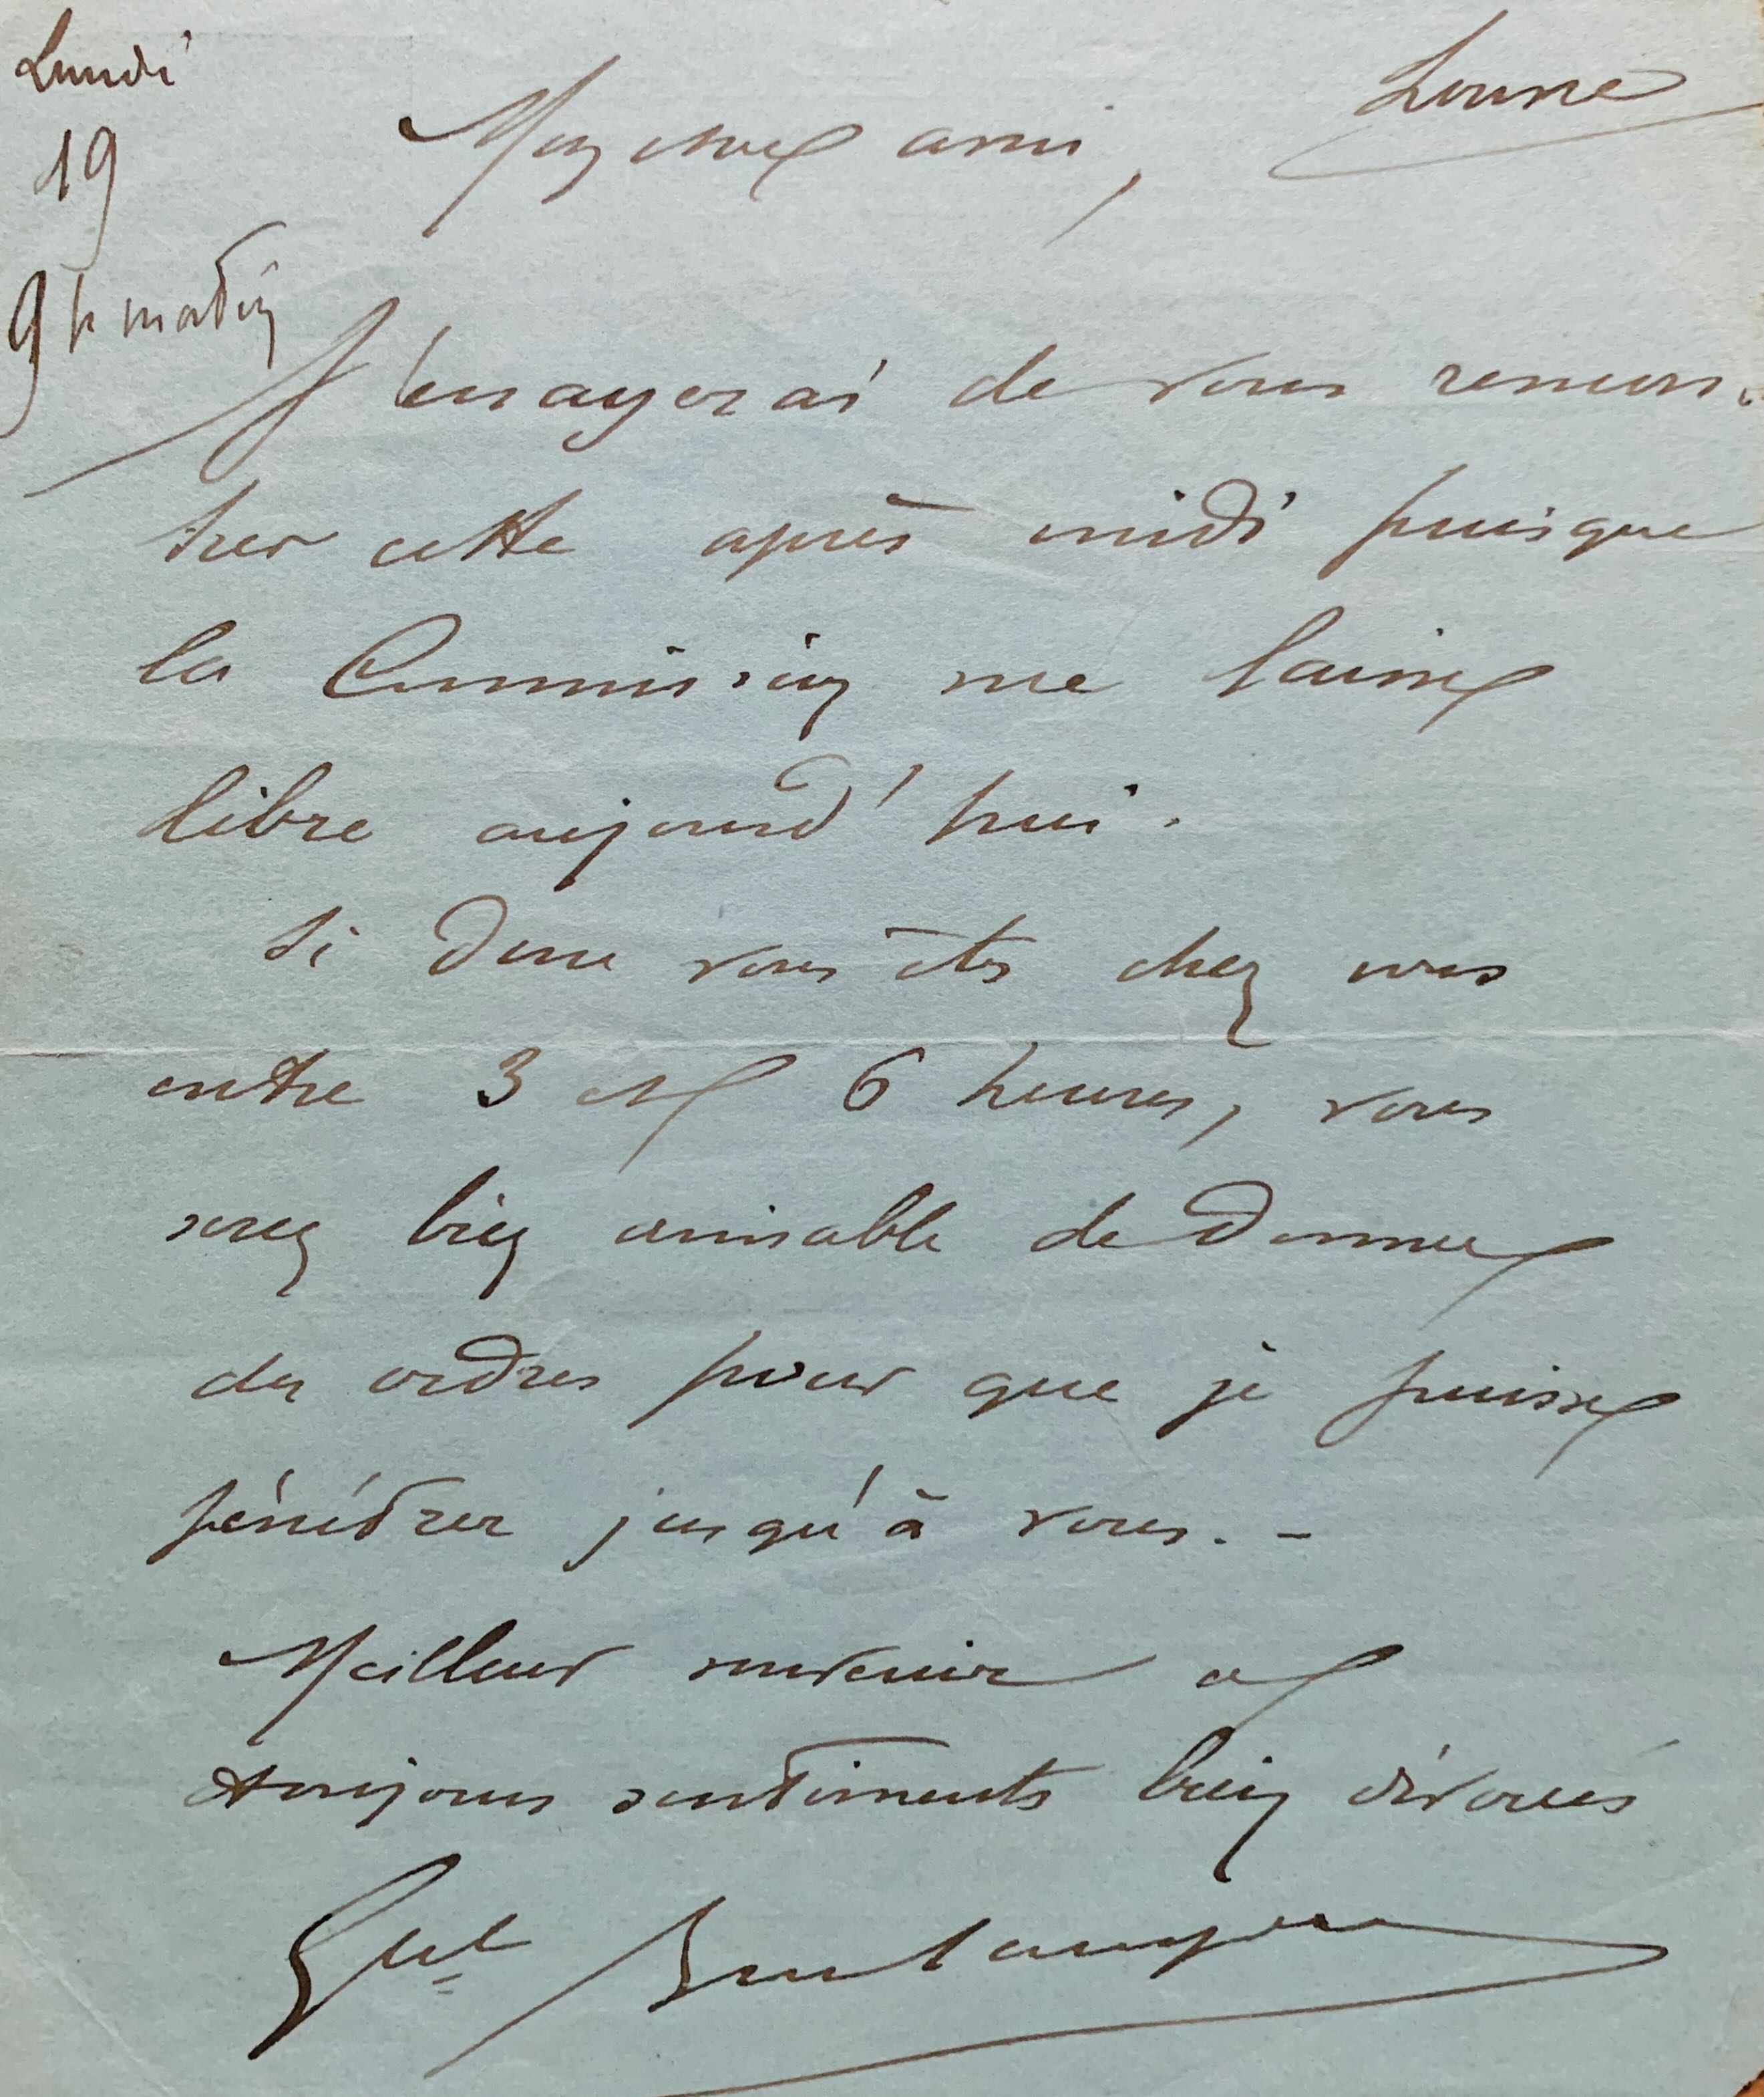 Lundi
19
9 h matin
Louvre
Mon cher ami,
J'essayerai de vous rencon-
trer cette après midi puisque
la Commission me laisse
libre aujourd'hui.
Si donc vous êtes chez vous
entre 3 et 6 heures, vous
serez bien aimable de donner
des ordres pour que je puisse
pénétrer jusqu'à vous. -
Meilleur souvenir et
toujours sentiments bien dévoués
Gal Boulanger